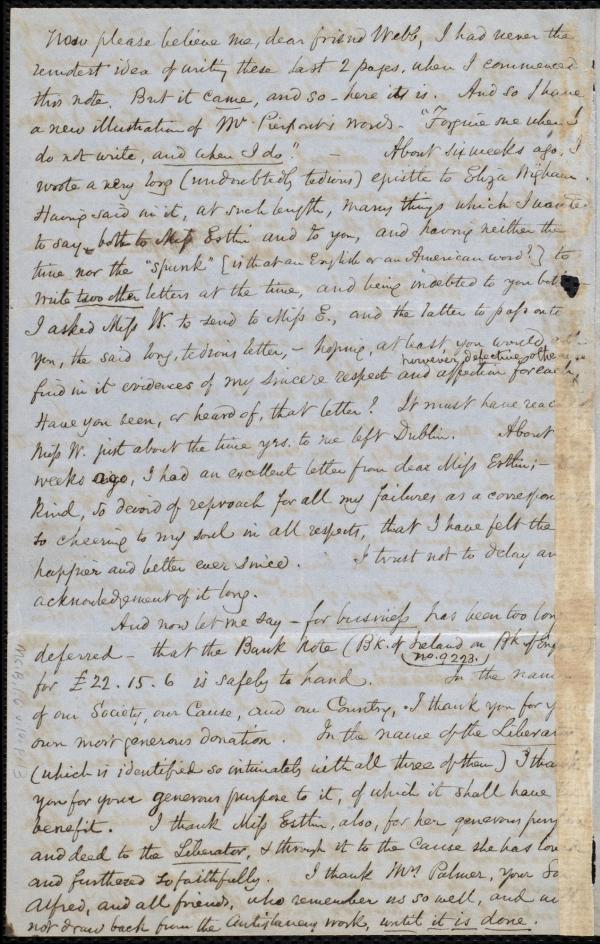 Now please believe me, dear friend Webb, I had never the
remotest idea of writing these last 2 pages, when I commenced
this note. But it came, and so - here it is. And so I have
a new illustration of Mr Pierpont's words - "Forgive me when I
do not write, and when I do". - About six weeks ago, I
wrote a very long (undoubtedly tedious) epistle to Eliza Wigham.
Having said in it, at such length, many things which I wanted
to say, both to Miss Estlin and to you, and having neither the
time nor the "spunk" [is that an English or an American word?] to
write two other letters at the time, and being indebted to you both
I asked Miss W. to send to Miss E., and the latter to pass on to
you, the said long, tedious letter, - hoping, at least you would
however defective otherwise
find in it evidences of my sincere respect and affection for each
Have you seen, or heard of, that letter? It must have reac
Miss W. just about the time yrs. to me left Dublin. About
weeks ago, I had an excellent letter from dear Miss Estlin; -
kind, so devoid of reproach for all my failures as a correspon
so cheering to my soul in all respects, that I have felt the
happier and better ever since. I trust not to delay an
acknowledgement of it long.
And now let me say - for business has been too lon
deferred - that the Bank Note (Bk. of Ireland on Bk of Eng
(no. 9223.)
for £22.15.6 is safely to hand. In the nam
of our Society, our Cause, and our Country, I thank you for y
own most generous donation. In the name of the Liberator
(which is identified so intimately with all three of them) I than
you for your generous purpose to it, of which it shall have
benefit. I thank Miss Estlin, also, for her generous purp
and deed to the Liberator, & through it to the Cause she has love
and furthered so faithfully. I thank Mrs Palmer, your So
Alfred, and all friends, who remember us so well, and w
not draw back from the Antislavery work, until it is done.